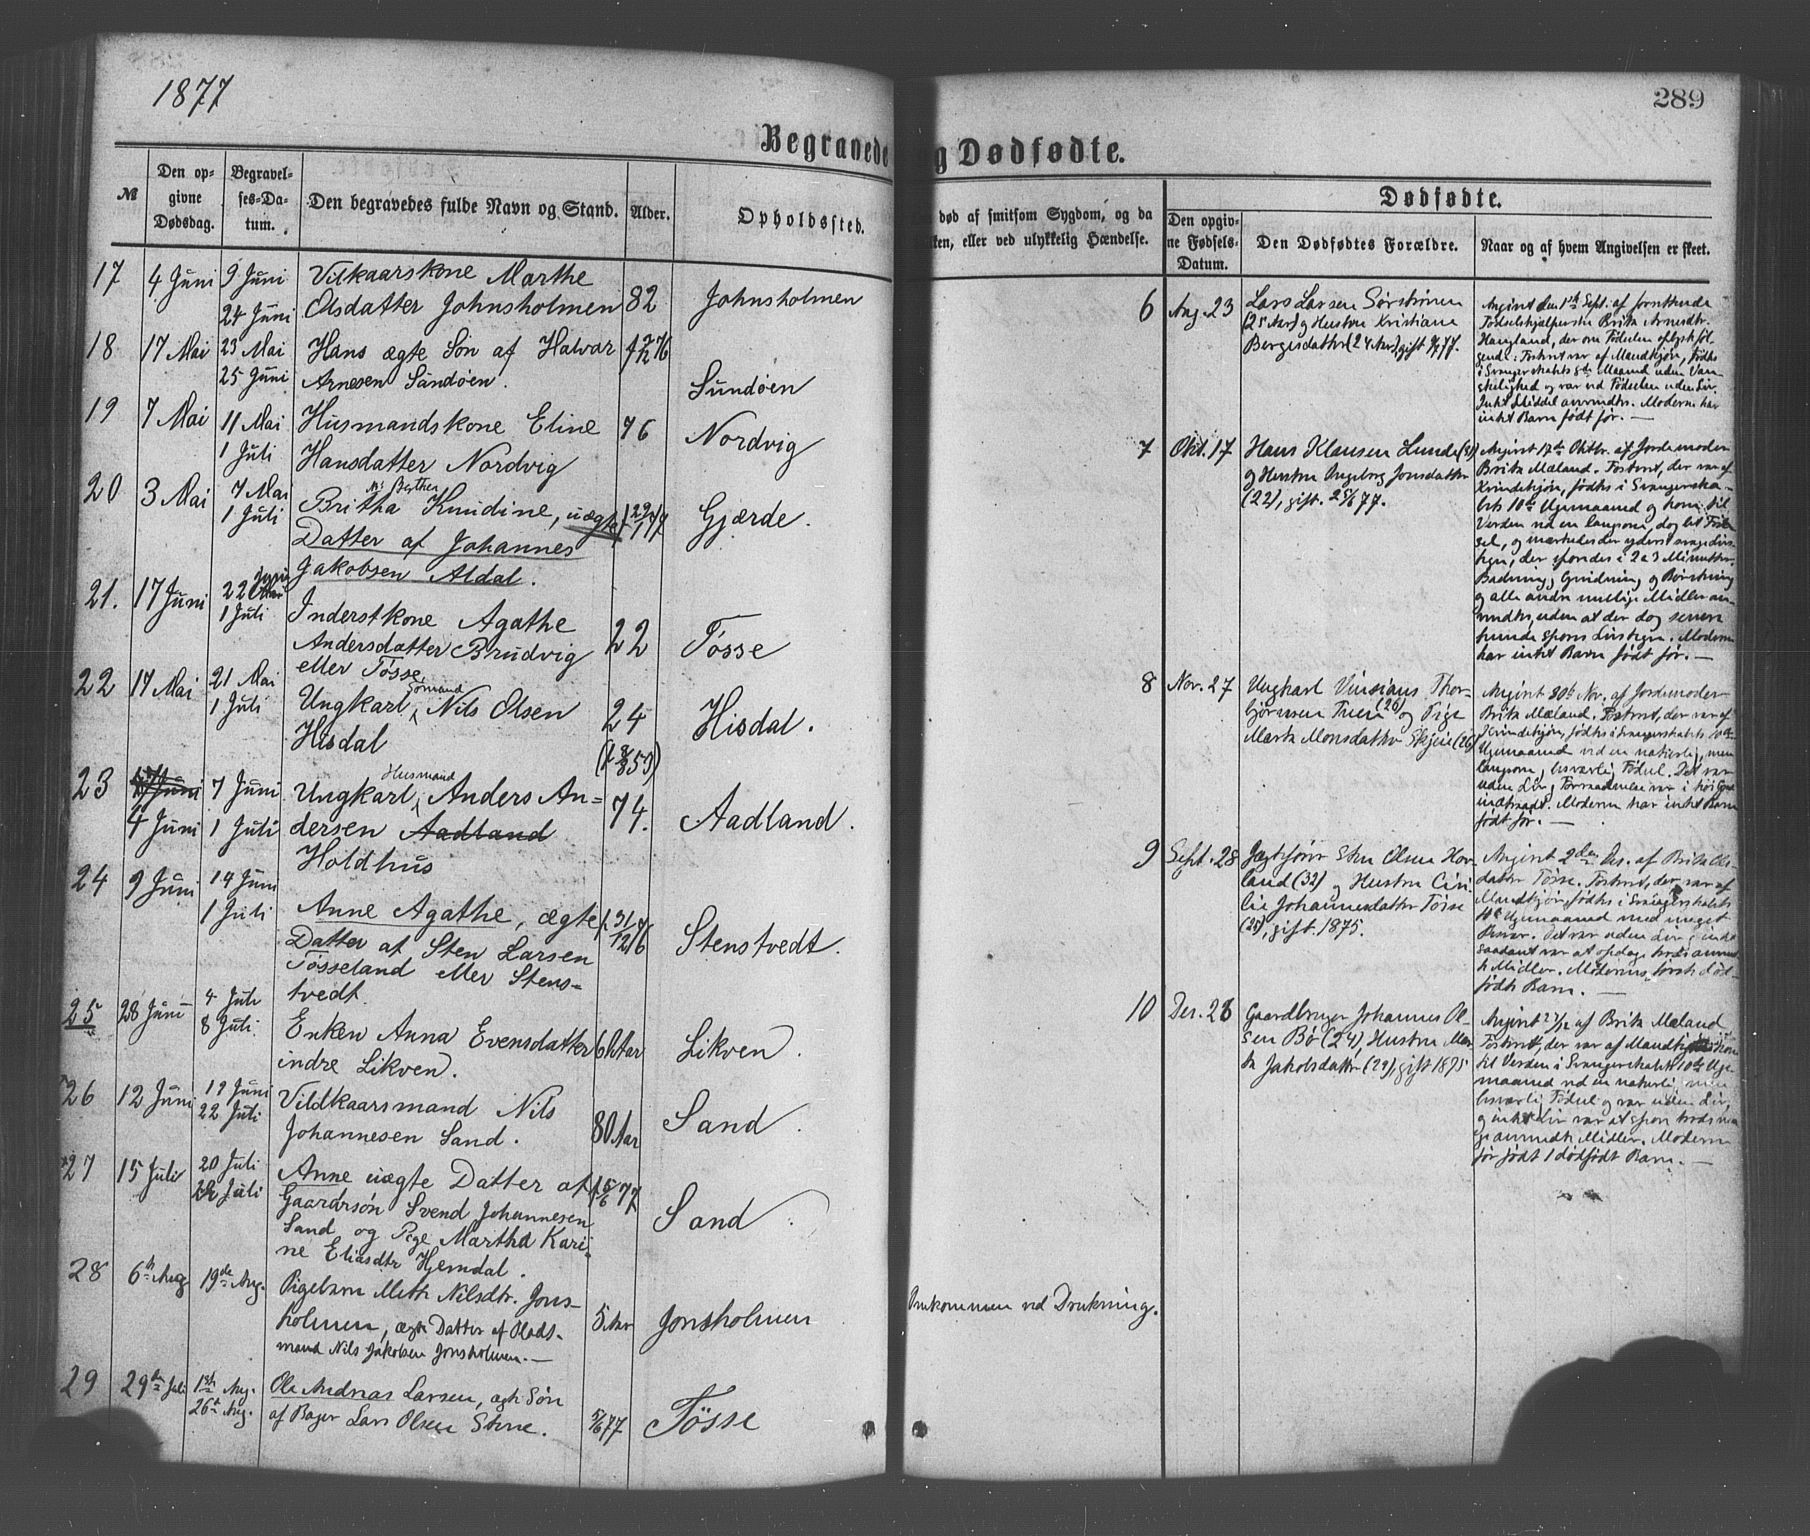 1877
289
Begravede
g Dødfødte.
№
Den op-
givne
Dødsdag.
Begravel-
ses-Da-
tum.
Den begravedes fulde Navn og Stand.
Alder.
Opholdssted.
død af smitsom Sygdom, og da
ken, eller ved ulykkelig Hændelse.
Dødfødte.
Den opgiv-
ne Fødsels-
Datum.
Den Dødfødtes Forældre.
Naar og af hvem Angivelsen er skeet.
17 4 Juni 9 Juni Vilkaarskone Marthe
24 Juni Olsdatter Johnsholmen 82 Johnsholmen
18 17 Mai 23 Mai Hans ægte Søn af Halvar
25 Juni Arnesen Sundøen. Sundøen
19 7 Mai 11 Mai Husmandskone Eline 76 Nordvig
1 Juli Hansdatter Nordvig
20 3 Mai 7 Mai Britha Knudine, uægte Gjærde.
1 Juli Datter af Johannes
Jakobsen Aldal.
21. 17 Juni 22 Juni
1 Juli Inderstkone Agathe 22 Tøsse
Andersdatter Brudvig
eller Tøsse
22 17 Mai 21 Mai Ungkarl, Sømand Nils Olsen 24 Hisdal.
1 Juli Hisdal
23 17 Juni 7 Juni Ungkarl, Husmand Anders An-
4 Juni 1 Juli dersen Aadland 74. Aadland.
Holdhus
24 9 Juni 14 Juni
1 Juli Anne Agathe, ægte 31/12 76 Stenstvedt.
Datter af Sten Larsen
Tøsseland eller Stens-
tvedt.
25 28 Juni 4 Juli
8 Juli Enken Anna Evensdatter Likven.
indre Likven.
26 12 Juni 17 Juni Vildkaarsmand Nils
22 Juli Johannesen Sand. 80 Aar Sand.
27 15 Juli 20 Juli Anne uægte Datter af 77
22 Juli Gaardrsøn Svend Johannesen Sand
Sand og Pige Martha Kari-
ne Eliasdtr Hjemdal.
28 6th Aug 19de Aug. Pigebarn Mette Nilsdtr. Jons-
holmen, ægte Datter af Plads- 5 Aar Jonsholmen Omkommen ved Drukning.
mand Nils Jakobsen Jonsholmen.—
29 29de Juli 1ste Aug. Ole Andreas Larsen, ægte Søn
26de Aug. af Bager Lars Olsen 77 Tösse
6 Aug. 23 Lars Larsen Sørstrønen
(25 Aar) og Hustru Kristiane
Børgesdatter (24 Aar), gift 77.
Angivet den 1ste Sept. af
Fødselshjælperske Brita Arnesdtr.
Haugland, der om Fødselen oplyste føl-
gende: Fosteret var af Mandkjøn, fødtes
i Svangerskabets 8de Maaned uden Van-
skelighed og var ved Fødselen uden Liv.
Intet Middel anvendtes. Moderen har
intet Barn født før.—
7 Okt. 17 Hans Klausen Lunde (31)
og Hustru Ingeborg Jonsdatter
(22), gift. 25/6 77.
Angivet 17de Oktbr. af Jordemoder
Brita Mæland. Fosteret, der var af
Kvindekjøn, fødtes i Svangerska-
bets 10de Ugemaaned og kom til
Verden ved en langsom, dog let Fød-
sel, og mærkedes der yderst svage Livs-
tegn, der sporedes i 2 a 3 Minutter.
Badning, Gnidning og Børstning
og alle andre mulige Midler an-
vendtes, uden at der dog senere
kunde spores Livstegn. Moderen
har intet Barn født før.—
8 Nov. 27 Ungkarl Vinsians Thor-
bjørnsen (26) og Pige
Marta Monsdatter Skjeie (26)
Angivet 30te Nov. af Jordemoder
Brita Mæland. Fosteret, der var af
Kvindekjøn, fødtes i Svangerskabets 10de
Ugemaaned ved en naturlig, men
langsom, besværlig Fødsel. Det var
uden Liv; Forraadnelse var i høi Grad
indtraadt. Moderen har intet Barn
født før.—
9 Sept. 28 Jægtefører Sten Olsen Hov-
land (32) og Hustru Ceci-
lie Johannesdatter Tøsse
(25), gift. 1875.
Angivet 2den Des. af Brita Ols-
datter Tøsse. Fosteret, der var af
Mandkjøn, fødtes i Svangerskabets
10de Ugemaaned med meget
Besvær. Det var uden Liv,
saadant var at opdage trods anvend-
te Midler. Moderens første død-
fødte Barn.—
10 Des. 28 Gaardbruger Johannes Ol-
sen Bø (24), Hustru Mar-
ta Jakobsdatter (29), gift 1875
Angivet af Brita Mæland
Fosteret, der var af Mandkjøn, kom
til Verden i Svangerskabets 10de Uge-
maaned ved en naturlig, men
besværlig Fødsel og var uden Liv,
og intet Liv var at spore trods man-
ge anvendte Midler. Moderen
før født 1 dødfødt Barn.—